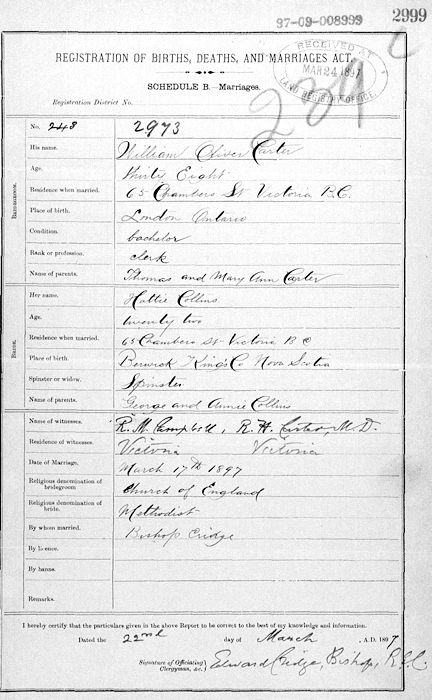 97-09-008999
2999
REGISTRATION OF BIRTHS, DEATHS, AND MARRIAGES ACT.
RECEIVED AT
MAR 24 1897
LAND REGISTRY OFFICE
SCHEDULE B.—Marriages.
Registration District No.
No. 248 2973
BRIDEGROOM.
His name. William Oliver Carter
Age. Thirty Eight
Residence when married. 65 Chambers St Victoria B.C.
Place of birth. London Ontario
Condition. bachelor
Rank or profession. clerk
Name of parents. Thomas and Mary Ann Carter
BRIDE.
Her name. Hattie Collins
Age. twenty two
Residence when married. 65 Chambers St Victoria B C
Place of birth. Berwick King's Co Nova Scotia
Spinster or widow. Spinster
Name of parents. George and Annie Collins
Name of witnesses. R. M. Campbell, R. H. Carter, M.D.
Residence of witnesses. Victoria Victoria
Date of Marriage. March 17th 1897
Religious denomination of bridegroom Church of England
Religious denomination of bride. Methodist
By whom married. Bishop Cridge
By licence.
By banns.
Remarks.
I hereby certify that the particulars given in the above Report to be correct to the best of my knowledge and information.
Dated the 22nd day of March, A.D. 1897
Signature of Officiating Clergyman, &c. Edward Cridge, Bishop, R.E.C.